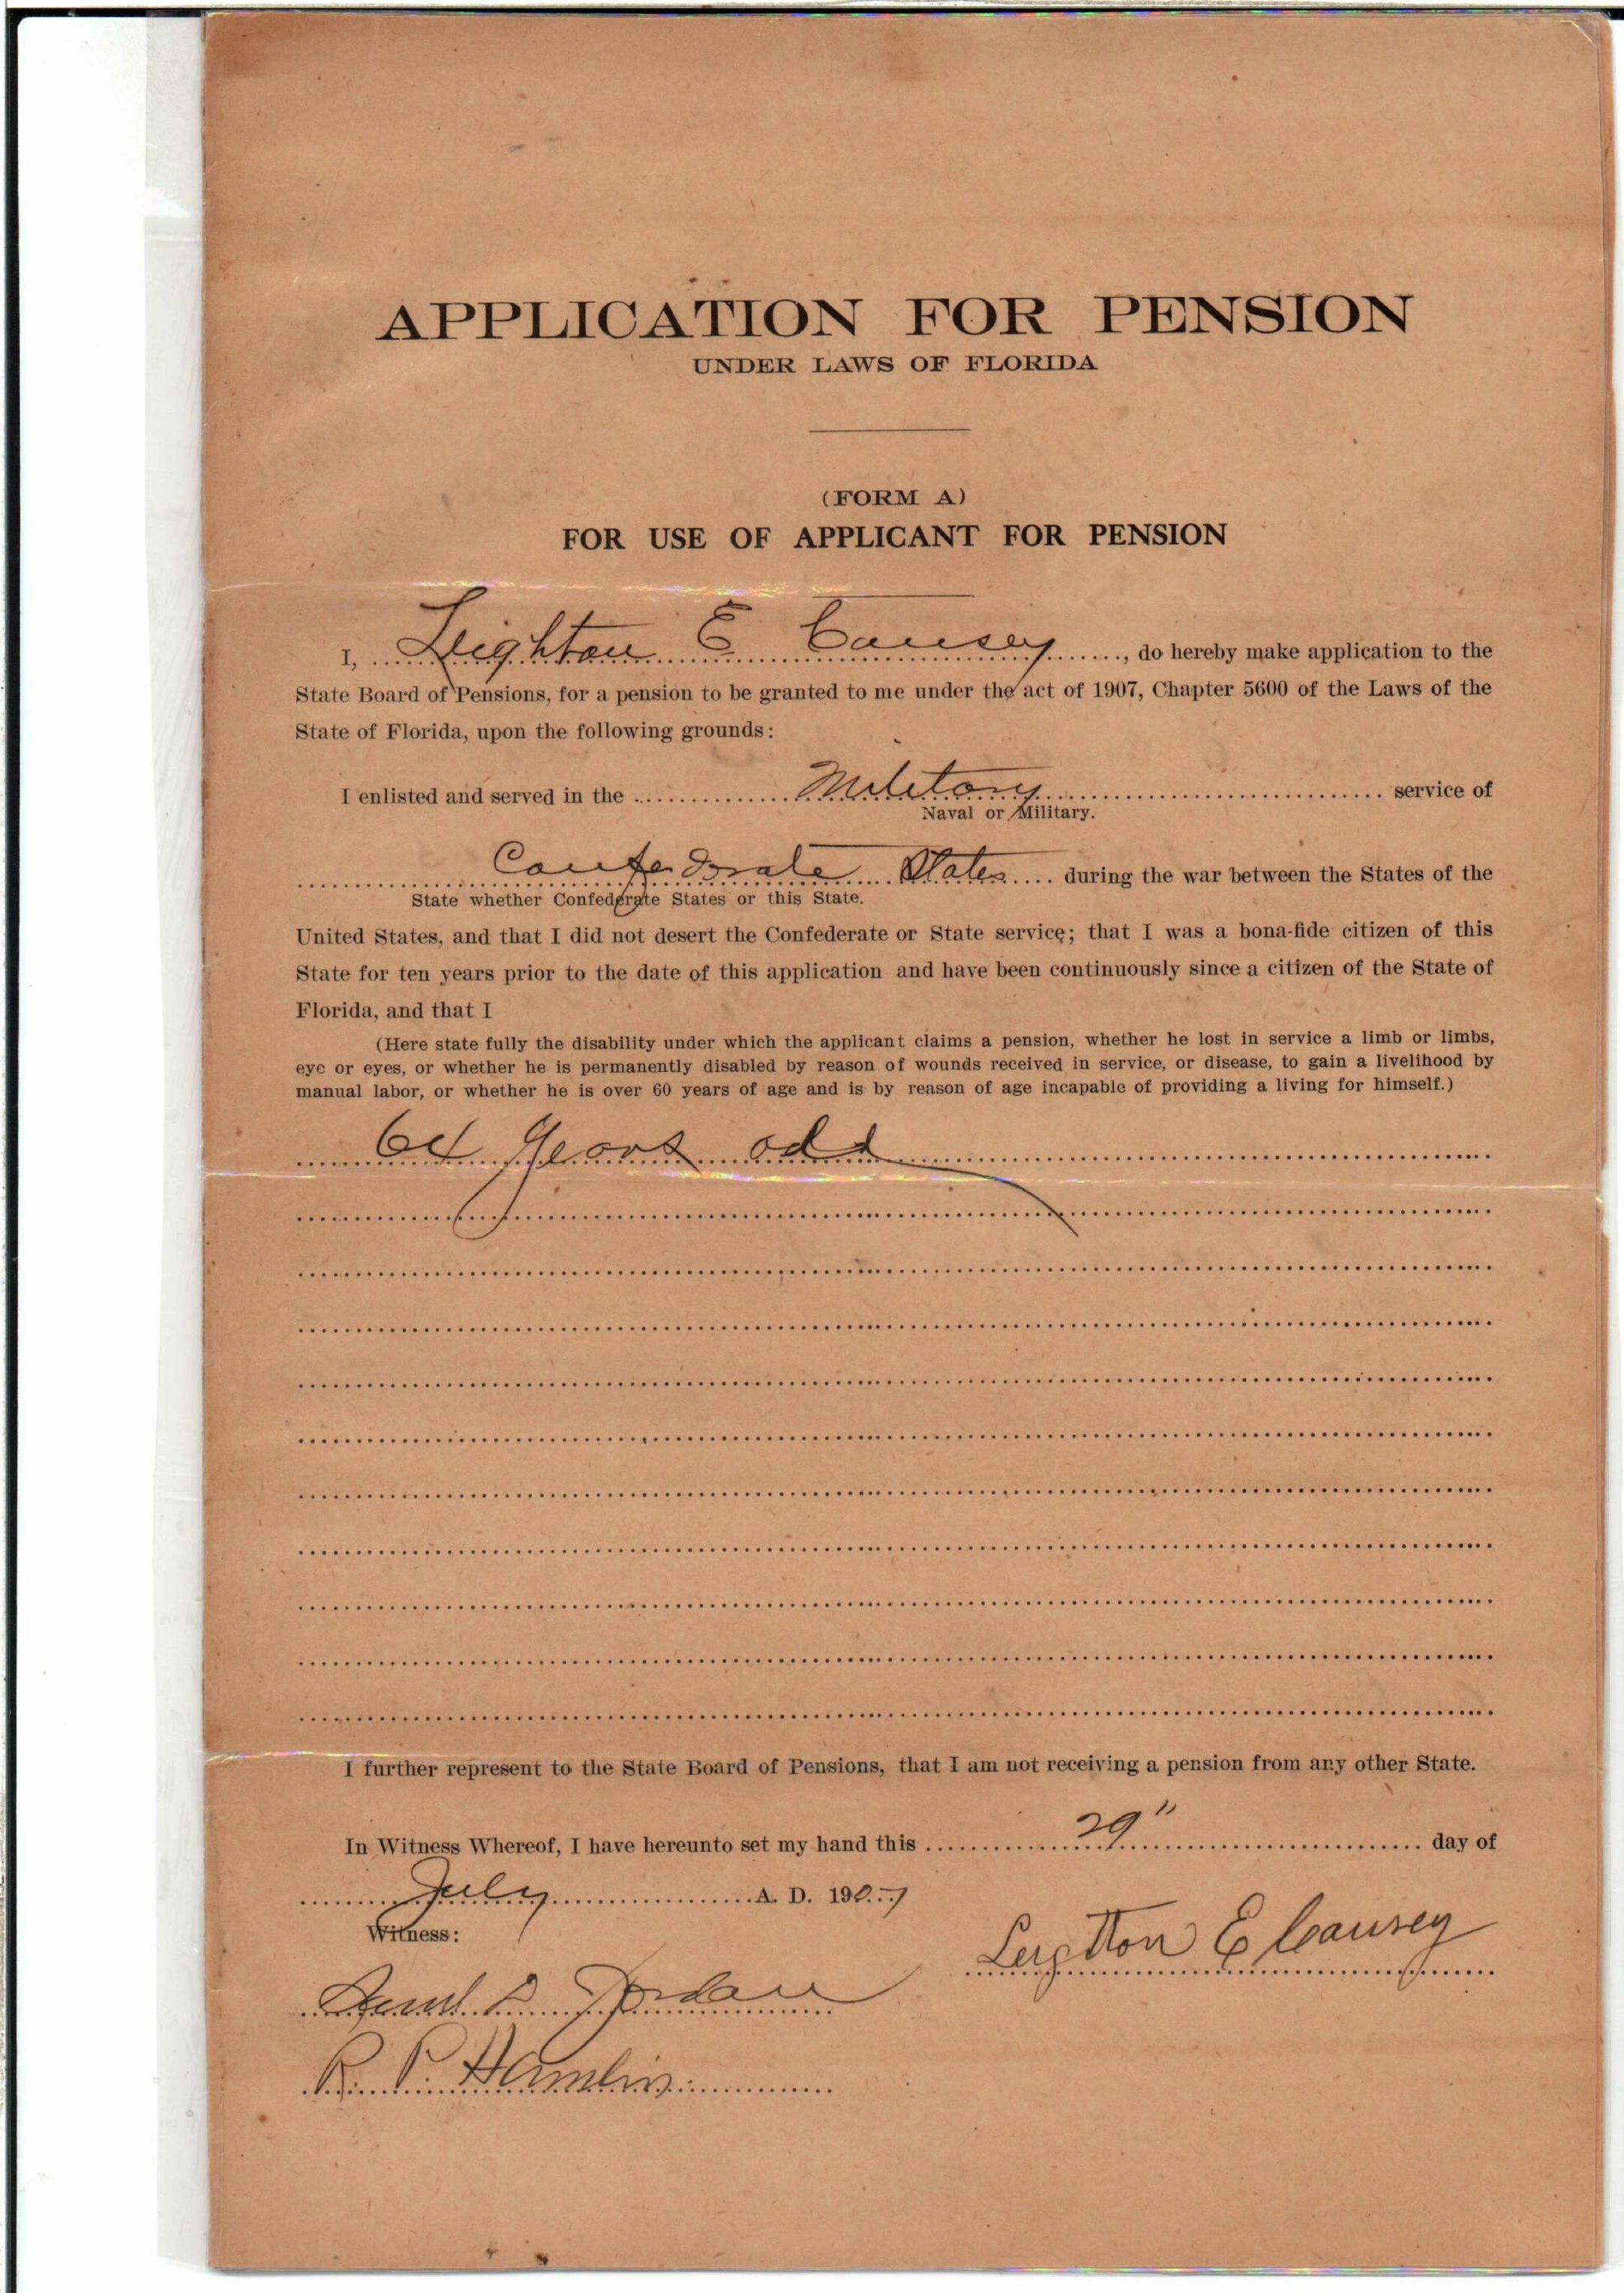 APPLICATION FOR PENSION
UNDER LAWS OF FLORIDA
(FORM A)
FOR USE OF APPLICANT FOR PENSION
I, Leighton E Causey, do hereby make application to the
State Board of Pensions, for a pension to be granted to me under the act of 1907, Chapter 5600 of the Laws of the
State of Florida, upon the following grounds:
I enlisted and served in the Military service of
Naval or Military.
Confederate States during the war between the States of the
State whether Confederate States or this State.
United States, and that I did not desert the Confederate or State service; that I was a bona-fide citizen of this
State for ten years prior to the date of this application and have been continuously since a citizen of the State of
Florida, and that I
(Here state fully the disability under which the applicant claims a pension, whether he lost in service a limb or limbs,
eye or eyes, or whether he is permanently disabled by reason of wounds received in service, or disease, to gain a livelihood by
manual labor, or whether he is over 60 years of age and is by reason of age incapable of providing a living for himself.)
64 years old
I further represent to the State Board of Pensions, that I am not receiving a pension from any other State.
In Witness Whereof, I have hereunto set my hand this 29" day of
July A. D. 1907
Witness:
Leighton E Causey
Jordan
R. P. Hamlin